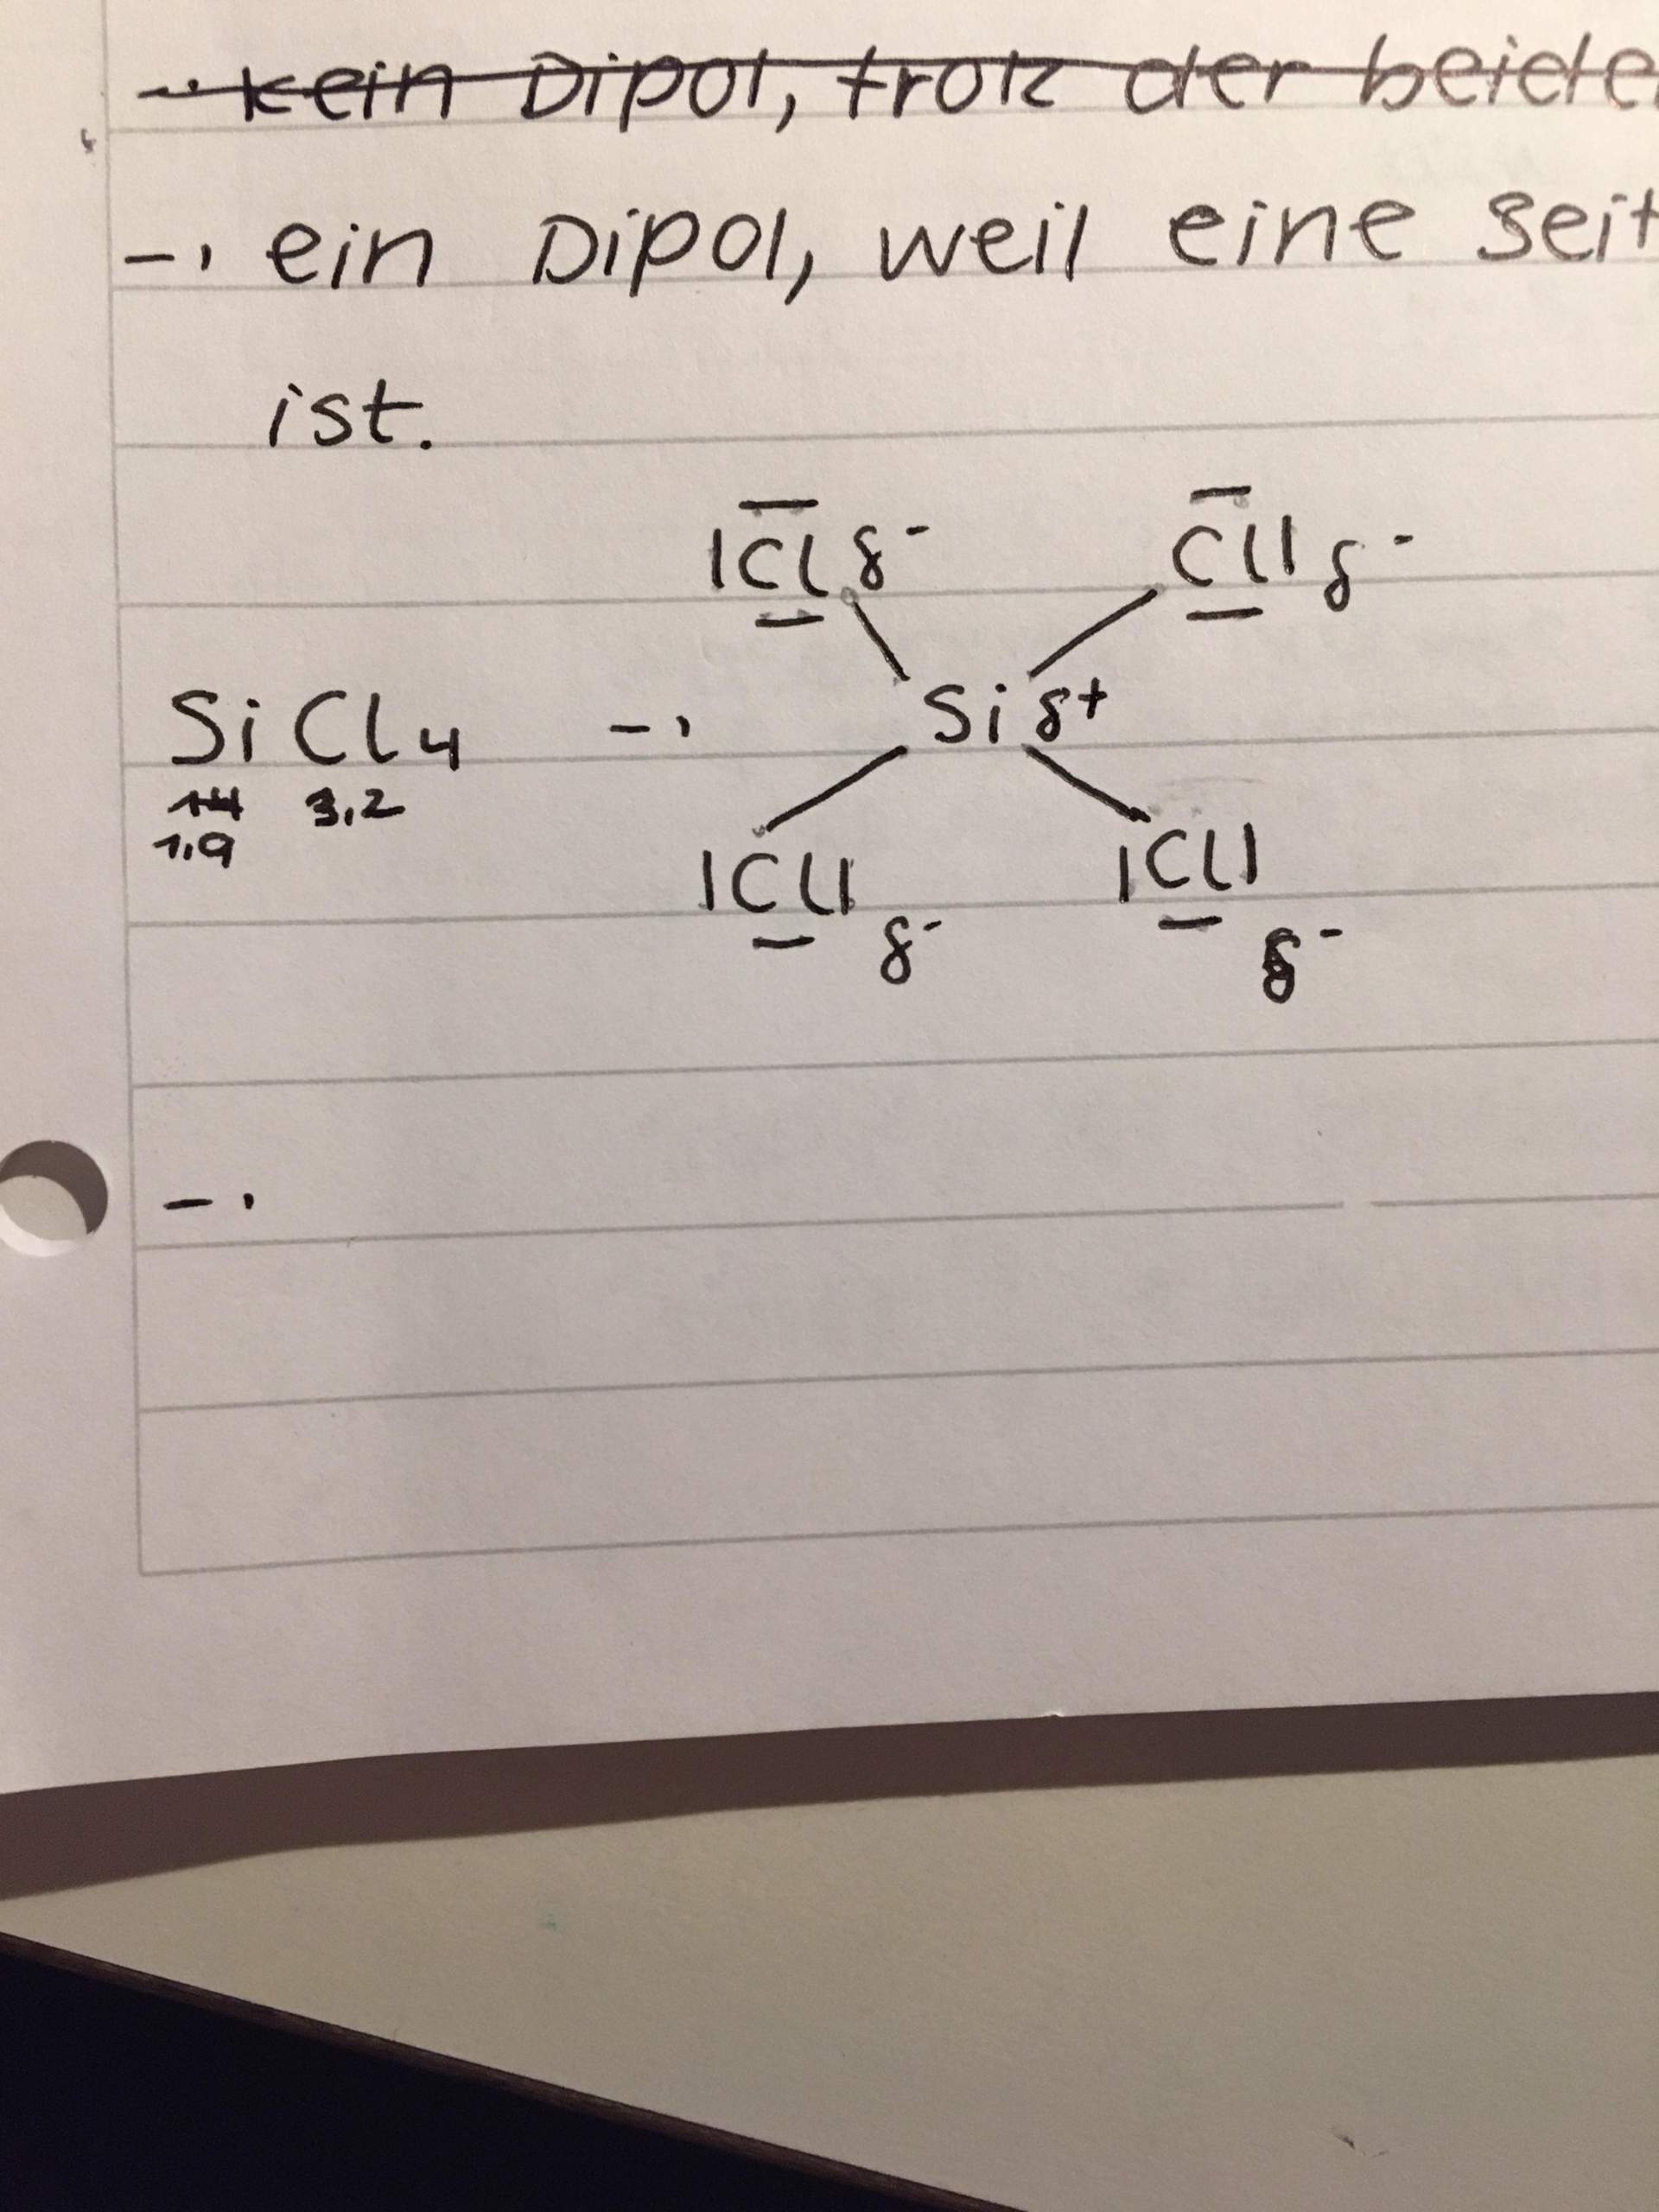 kein Dipol, trotz der beide
-, ein Dipol, weil eine seit
ist.
|Cl δ- Cl| δ-
SiCl4 -, Si δ+
14 3,2
1,9
|Cl| δ- |Cl| δ-
-,